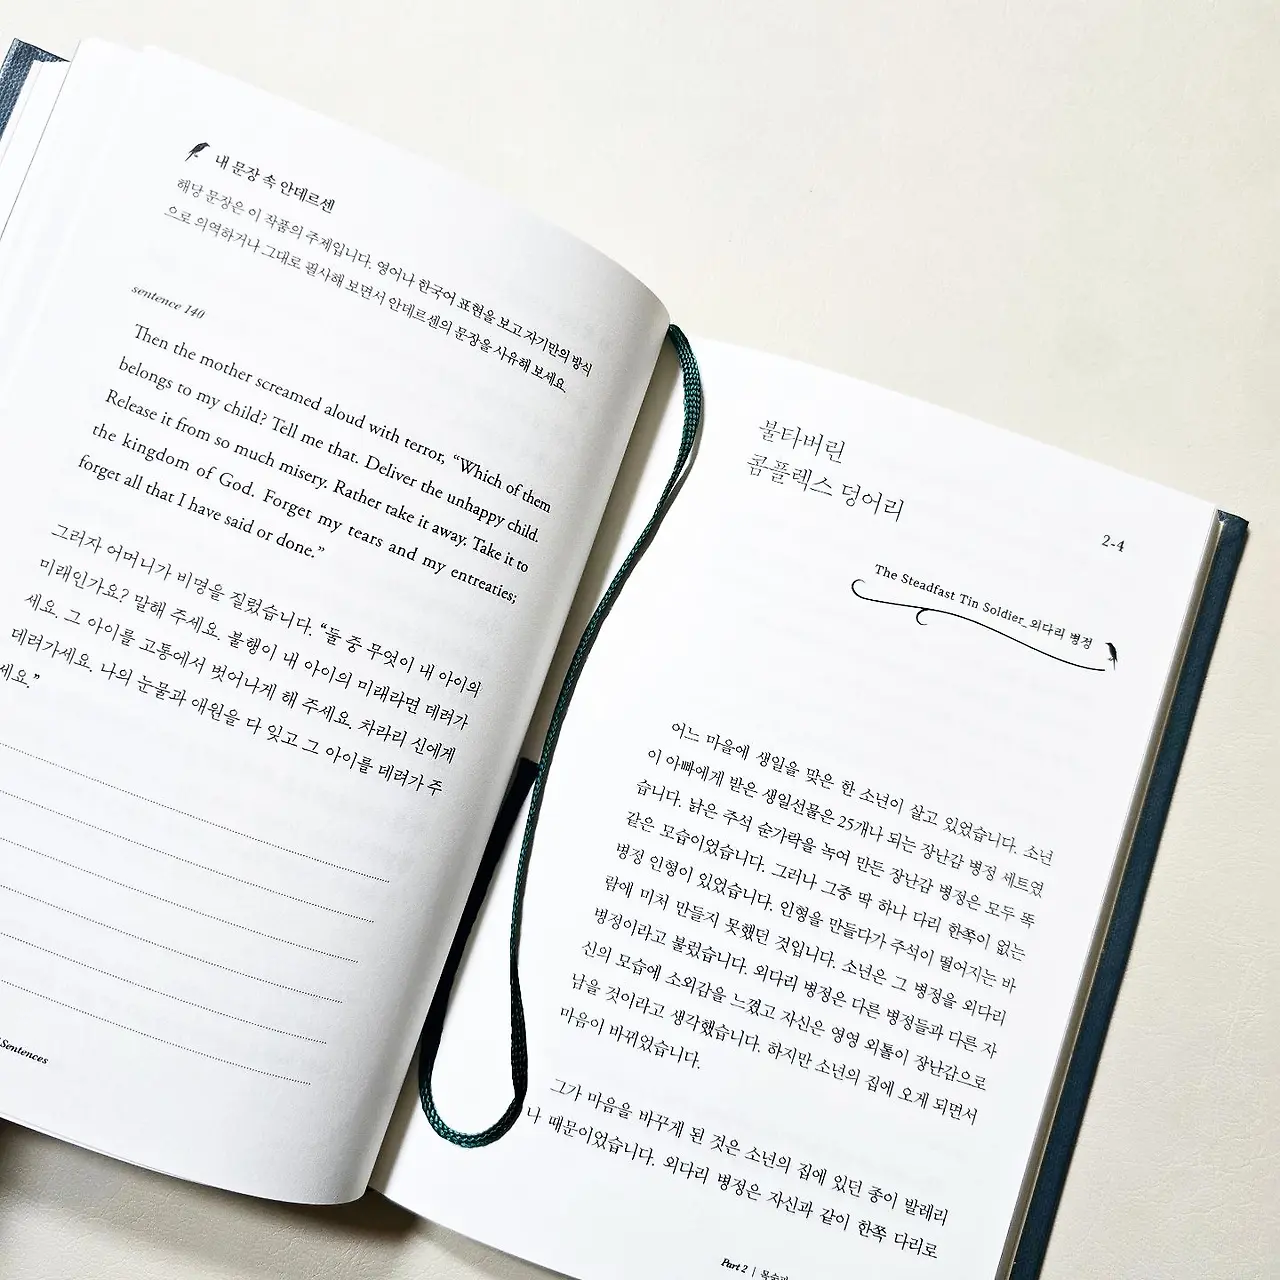 내 문장 속 안데르센
해당 문장은 이 작품의 주제입니다. 영어나 한국어 표현을 보고 자기만의 방식
으로 의역하거나 그대로 필사해 보면서 안데르센의 문장을 사유해 보세요.
sentence 140
Then the mother screamed aloud with terror, “Which of them
belongs to my child? Tell me that. Deliver the unhappy child.
Release it from so much misery. Rather take it away. Take it to
the kingdom of God. Forget my tears and my entreaties;
forget all that I have said or done.”
그러자 어머니가 비명을 질렀습니다. “둘 중 무엇이 내 아이의
미래인가요? 말해 주세요. 불행이 내 아이의 미래라면 데려가
세요. 그 아이를 고통에서 벗어나게 해 주세요. 차라리 신에게
데려가세요. 나의 눈물과 애원을 다 잊고 그 아이를 데려가 주
세요.”
Sentences
불타버린
콤플렉스 덩어리
2-4
The Steadfast Tin Soldier_외다리 병정
어느 마을에 생일을 맞은 한 소년이 살고 있었습니다. 소년
이 아빠에게 받은 생일선물은 25개나 되는 장난감 병정 세트였
습니다. 낡은 주석 숟가락을 녹여 만든 장난감 병정은 모두 똑
같은 모습이었습니다. 그러나 그중 딱 하나 다리 한쪽이 없는
병정 인형이 있었습니다. 인형을 만들다가 주석이 떨어지는 바
람에 미처 만들지 못했던 것입니다. 소년은 그 병정을 외다리
병정이라고 불렀습니다. 외다리 병정은 다른 병정들과 다른 자
신의 모습에 소외감을 느꼈고 자신은 영영 외톨이 장난감으로
남을 것이라고 생각했습니다. 하지만 소년의 집에 오게 되면서
마음이 바뀌었습니다.
그가 마음을 바꾸게 된 것은 소년의 집에 있던 종이 발레리
나 때문이었습니다. 외다리 병정은 자신과 같이 한쪽 다리로
Part 2 |